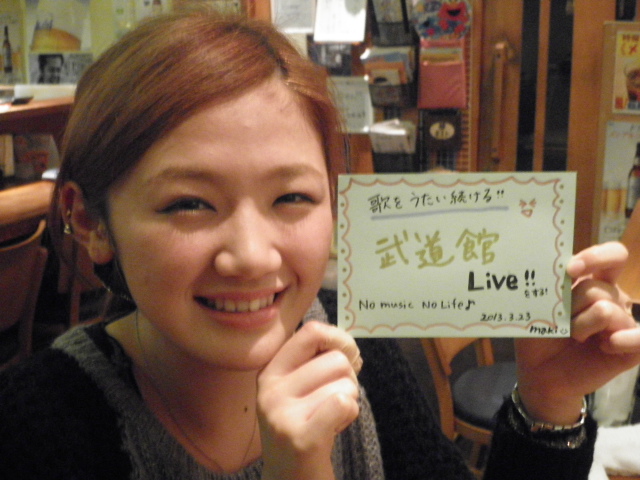 歌をうたい続ける!!
武道館
Live!!
をする!
No music No Life♪
2013.3.23
maki